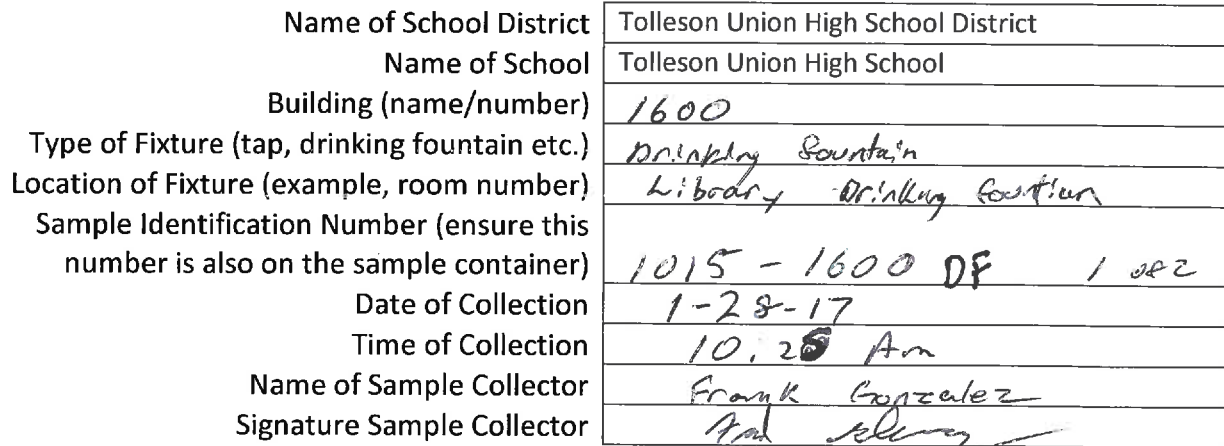 Name of School District Tolleson Union High School District
Name of School Tolleson Union High School
Building (name/number) 1600
Type of Fixture (tap, drinking fountain etc.) Drinking Fountain
Location of Fixture (example, room number) Library Drinking fountian
Sample Identification Number (ensure this
number is also on the sample container) 1015-1600 DF 1 of 2
Date of Collection 1-28-17
Time of Collection Am
Name of Sample Collector Frank Gonzalez
Signature Sample Collector